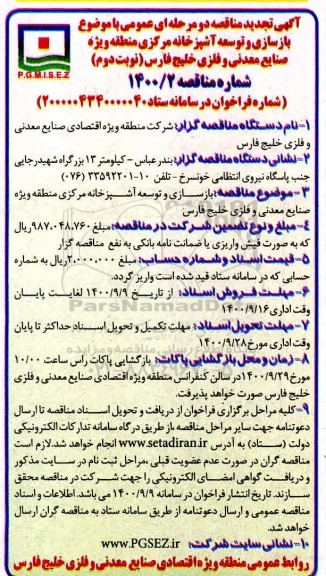 آگهی تجدید مناقصه دو مرحله ای عمومی با موضوع
بازسازی و توسعه آشپزخانه مرکزی منطقه ویژه
صنایع معدنی و فلزی خلیج فارس (نوبت دوم)
P.G.M.I.S.E.Z
شماره مناقصه ۱۴۰۰/۲
(شماره فراخوان در سامانه ستاد ۲۰۰۰۰۰۴۳۴۰۰۰۰۰۴۰)
۱-نام دستگاه مناقصه گزار: شرکت منطقه ویژه اقتصادی صنایع معدنی
و فلزی خلیج فارس
۲-نشانی دستگاه مناقصه گزار: بندرعباس - کیلومتر ۱۳ بزرگراه شهید رجایی
جنب پاسگاه نیروی انتظامی خونسرخ - تلفن ۱۰-۳۳۵۹۲۲۰۱ (۰۷۶)
۳- موضوع مناقصه: بازسازی و توسعه آشپزخانه مرکزی منطقه ویژه
صنایع معدنی و فلزی خلیج فارس
۴-مبلغ و نوع تضمین شرکت در مناقصه: مبلغ ۹۸۷،۰۴۸،۷۶۰ ریال
که به صورت فیش واریزی یا ضمانت نامه بانکی به نفع مناقصه گزار
۵- قیمت اسناد و شماره حساب: مبلغ ۲،۰۰۰،۰۰۰ ریال به شماره
حسابی که در سامانه ستاد قید شده است واریز گردد.
۶- مهلت فروش اسناد: از تاریخ ۱۴۰۰/۹/۹ لغایت پایان
وقت اداری ۱۴۰۰/۹/۱۶
۷- مهلت تحویل اسناد: مهلت تکمیل و تحویل اسناد حداکثر تا پایان
وقت اداری مورخ ۱۴۰۰/۹/۲۸
۸- زمان و محل بازگشایی پاکات: بازگشایی پاکات راس ساعت ۱۰/۰۰
مورخ ۱۴۰۰/۹/۲۹ در سالن کنفرانس منطقه ویژه اقتصادی صنایع معدنی و فلزی
خلیج فارس صورت خواهد پذیرفت.
۹-کلیه مراحل برگزاری فراخوان از دریافت و تحویل اسناد مناقصه تا ارسال
دعوتنامه جهت سایر مراحل مناقصه از طریق درگاه سامانه تدارکات الکترونیکی
دولت (ستاد) به آدرس www.setadiran.ir انجام خواهد شد. لازم است
مناقصه گران در صورت عدم عضویت قبلی، مراحل ثبت نام در سایت مذکور
و دریافت گواهی امضای الکترونیکی را جهت شرکت در مناقصه محقق
سازند. تاریخ انتشار فراخوان در سامانه ۱۴۰۰/۹/۹ می باشد. اطلاعات و اسناد
مناقصه عمومی و ارسال دعوتنامه از طریق سامانه ستاد به مناقصه گران ارسال
خواهد شد.
۱۰- نشانی سایت شرکت: www.PGSEZ.ir
روابط عمومی منطقه ویژه اقتصادی صنایع معدنی و فلزی خلیج فارس